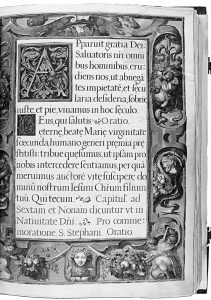 Apparuit gratia Dei
Saluatoris nri omni
bus hominibus, eru
diens nos, ut abnegã
tes impietatẽ, et secu
laria desideria, sobrie
iuste, et pie, viuamus in hoc sęculo.
Deus, qui salutis Oratio.
eternę, beatę Marię virginitate
foecunda, humano generi premia prę
stitisti: tribue quęsumus, ut ipsam pro
nobis intercedere sentiamus, per quã
meruimus auctorẽ vitę suscipere do
minũ nostrum Iesum Chrm filium
tuũ Qui tecum. Capitul. ad
Sextam et Nonam dicuntur vt in
Natiuitate Dnĩ. Pro comme
moratione S. Stephani. Oratio.